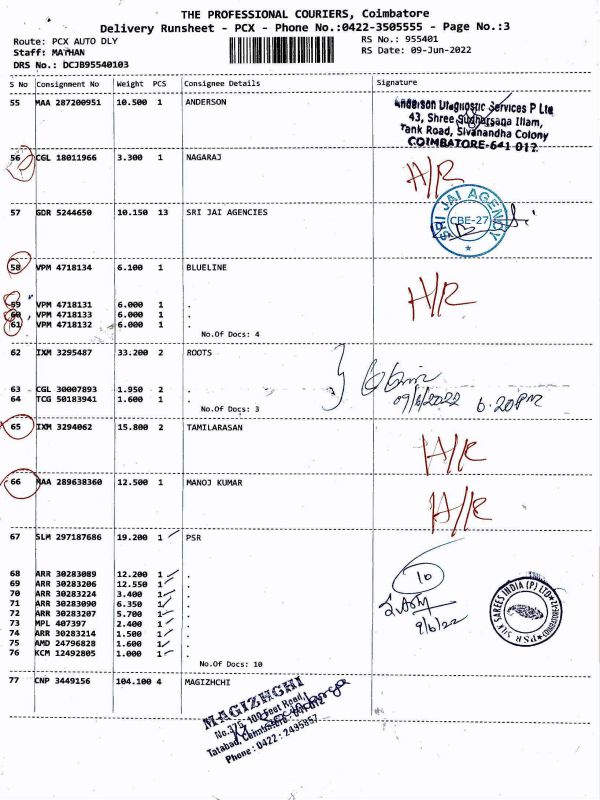 THE PROFESSIONAL COURIERS, Coimbatore
Delivery Runsheet - PCX - Phone No.:0422-3505555 - Page No.:3
Route: PCX AUTO DLY
RS No.: 955401
Staff: MATHAN
RS Date: 09-Jun-2022
DRS No.: DCJB95540103
S No Consignment No Weight PCS Consignee Details Signature
55 MAA 287200951 10.500 1 ANDERSON
Anderson Diagnostic Services P Ltd
43, Shree Sudharsana Illam,
Tank Road, Sivanandha Colony
COIMBATORE-641 012
56 CGL 18011966 3.300 1 NAGARAJ
A/R
57 GDR 5244650 10.150 13 SRI JAI AGENCIES
SRI JAI AGENCY
CBE-27
58 VPM 4718134 6.100 1 BLUELINE
A/R
59 VPM 4718131 6.000 1 .
60 VPM 4718133 6.000 1 .
61 VPM 4718132 6.000 1 .
No.Of Docs: 4
62 IXM 3295487 33.200 2 ROOTS
63 CGL 30007893 1.950 2 .
64 TCG 50183941 1.600 1 .
09/6/2022 6.20PM
No.Of Docs: 3
65 IXM 3294062 15.800 2 TAMILARASAN
A/R
66 MAA 289638360 12.500 1 MANOJ KUMAR
A/R
67 SLM 297187686 19.200 1 PSR
68 ARR 30283089 12.200 1 .
69 ARR 30283206 12.550 1 .
70 ARR 30283224 3.400 1 .
71 ARR 30283090 6.350 1 .
72 ARR 30283207 5.700 1 .
73 MPL 407397 2.400 1 .
74 ARR 30283214 1.500 1 .
75 AMD 24796828 1.600 1 .
76 KCM 12492805 1.000 1 .
10
9/6/22
PSR SILK SAREES INDIA (P) LTD
COIMBATORE-12
No.Of Docs: 10
77 CNP 3449156 104.100 4 MAGIZHCHI
MAGIZHCHI
No.375, 100 Feet Road,
Tatabad, Coimbatore - 641 012
Phone : 0422 : 2495857